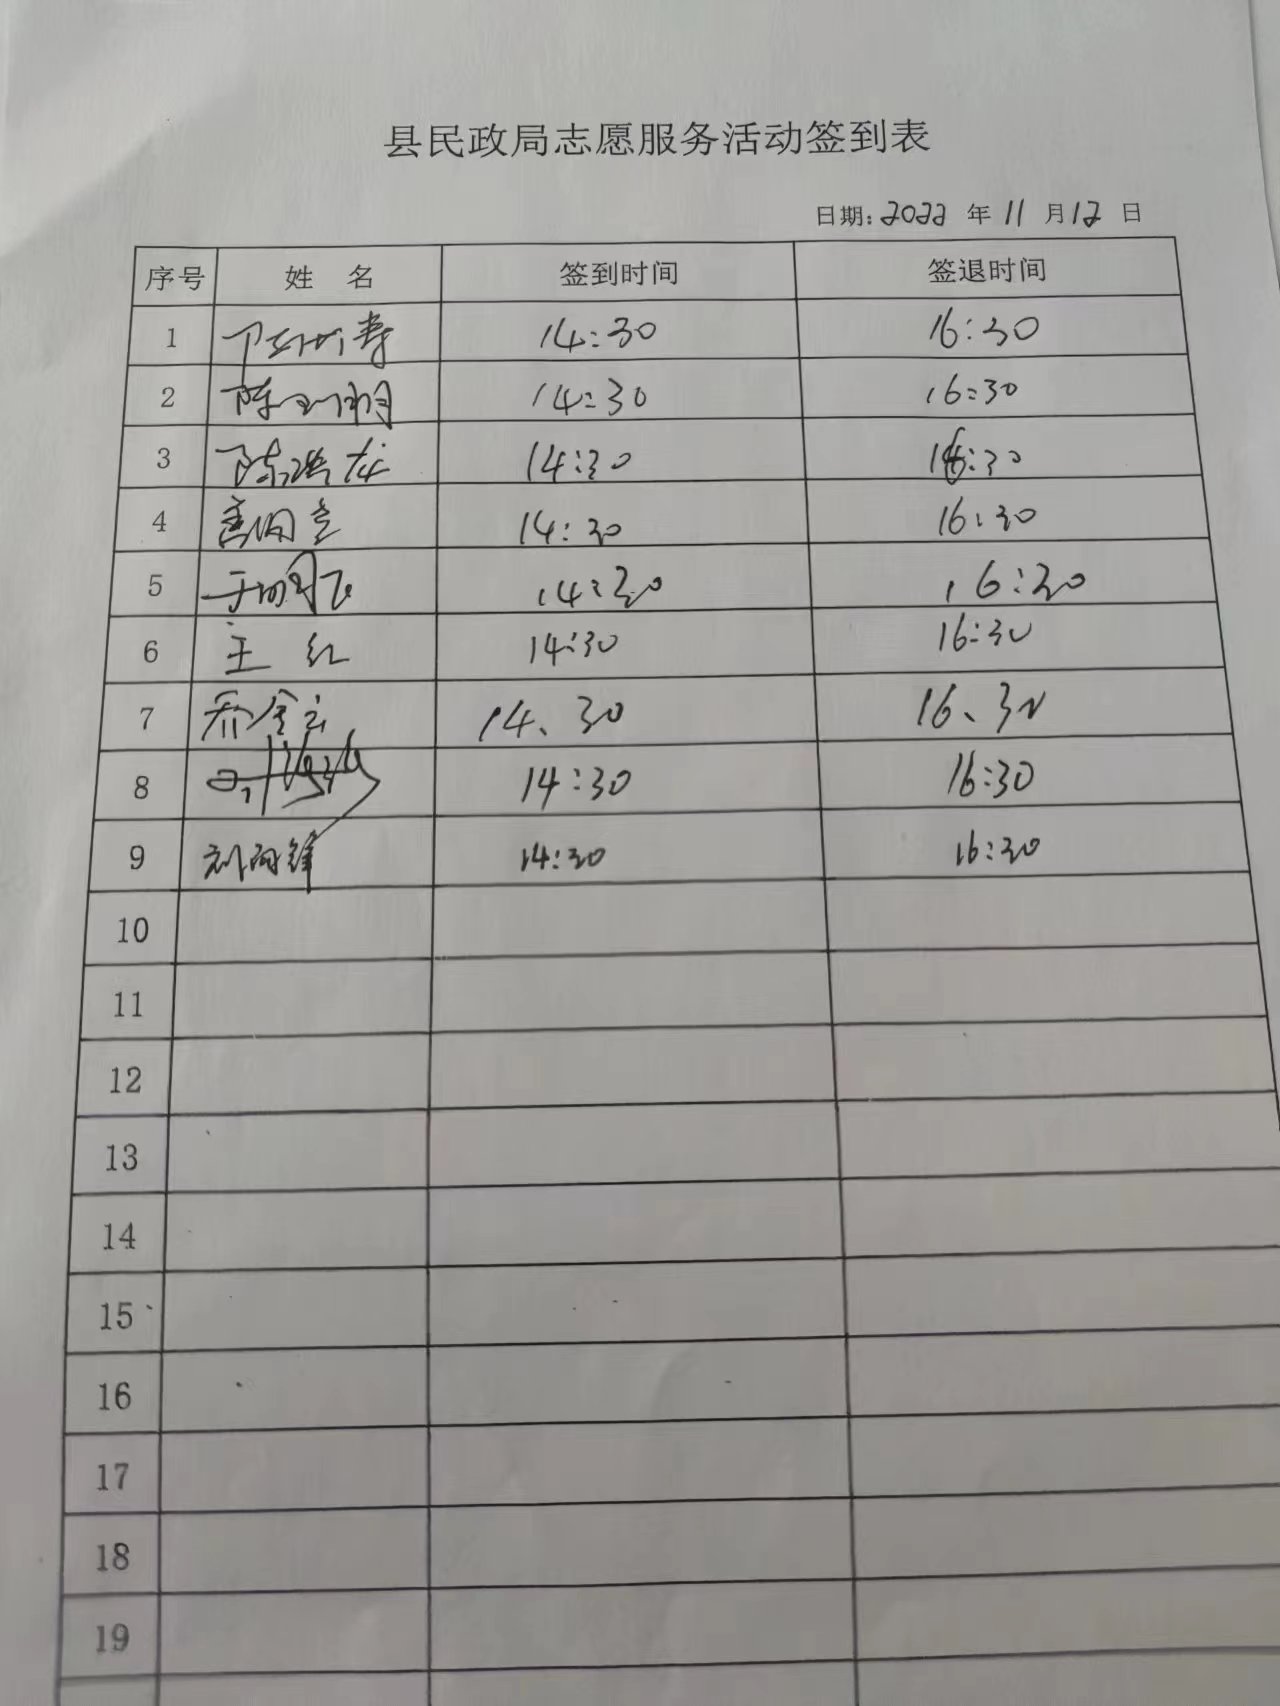 县民政局志愿服务活动签到表
日期: 2022 年 11 月 12 日
序号 姓 名 签到时间 签退时间
1 14:30 16:30
2 陈 明 14:30 16:30
3 陈洪龙 14:30 16:30
4 14:30 16:30
5 于 飞 14:30 16:30
6 王 红 14:30 16:30
7 乔金 14、30 16、30
8 14:30 16:30
9 刘向锋 14:30 16:30
10
11
12
13
14
15
16
17
18
19